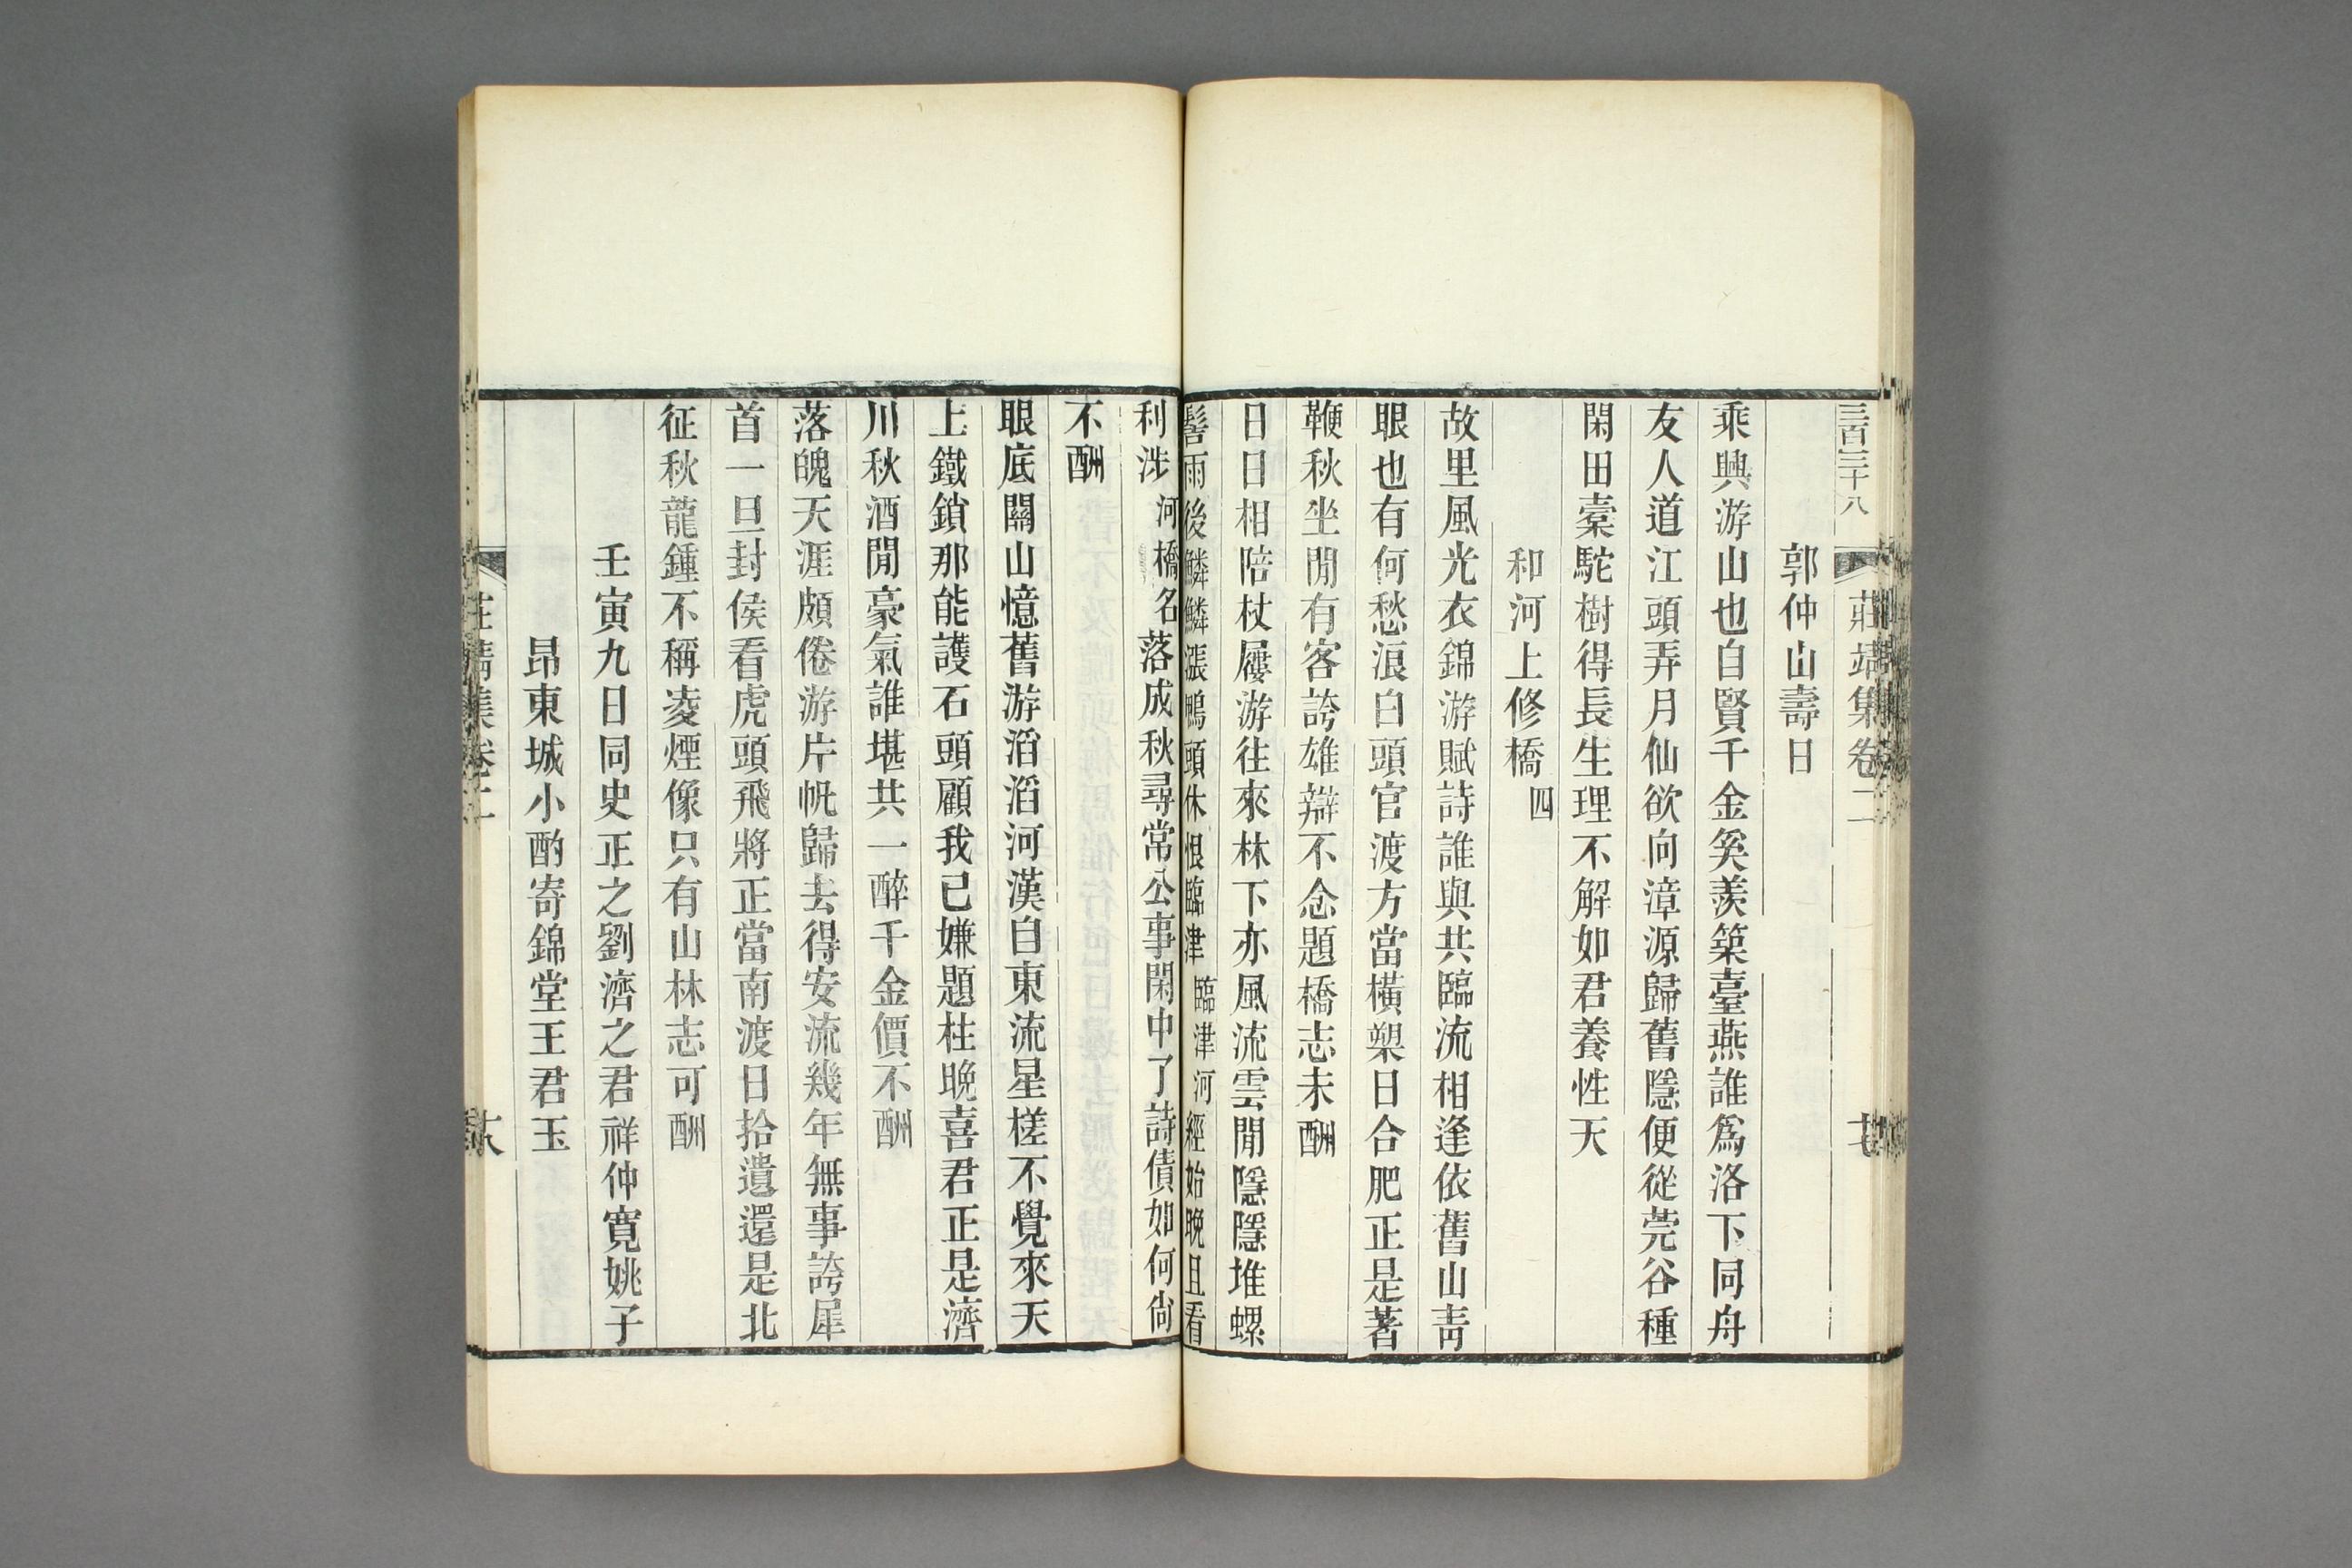 三百三十八
莊靖集卷二
郭仲山壽日
乘興游山也自賢千金奚羨築臺燕誰爲洛下同舟
友人道江頭弄月仙欲向漳源歸舊隱便從莞谷種
閑田槖駝樹得長生理不解如君養性天
和河上修橋四
故里風光衣錦游賦詩誰與共臨流相逢依舊山靑
眼也有何愁浪白頭官渡方當橫槊日合肥正是著
鞭秋坐閒有客誇雄辯不念題橋志未酬
日日相陪杖屨游往來林下亦風流雲閒隱隱堆螺
髻雨後鱗鱗漲鴨頭休恨臨津臨津河經始晚且看
利涉河橋名落成秋尋常公事閑中了詩債如何尙
不酬
眼底關山憶舊游滔滔河漢自東流星槎不覺來天
上鐵鎖那能護石頭顧我已嫌題柱晚喜君正是濟
川秋酒閒豪氣誰堪共一醉千金價不酬
落魄天涯頗倦游片帆歸去得安流幾年無事誇犀
首一旦封侯看虎頭飛將正當南渡日拾遺還是北
征秋龍鍾不稱凌煙像只有山林志可酬
壬寅九日同史正之劉濟之君祥仲寬姚子
昂東城小酌寄錦堂王君玉
莊靖集卷二
十八